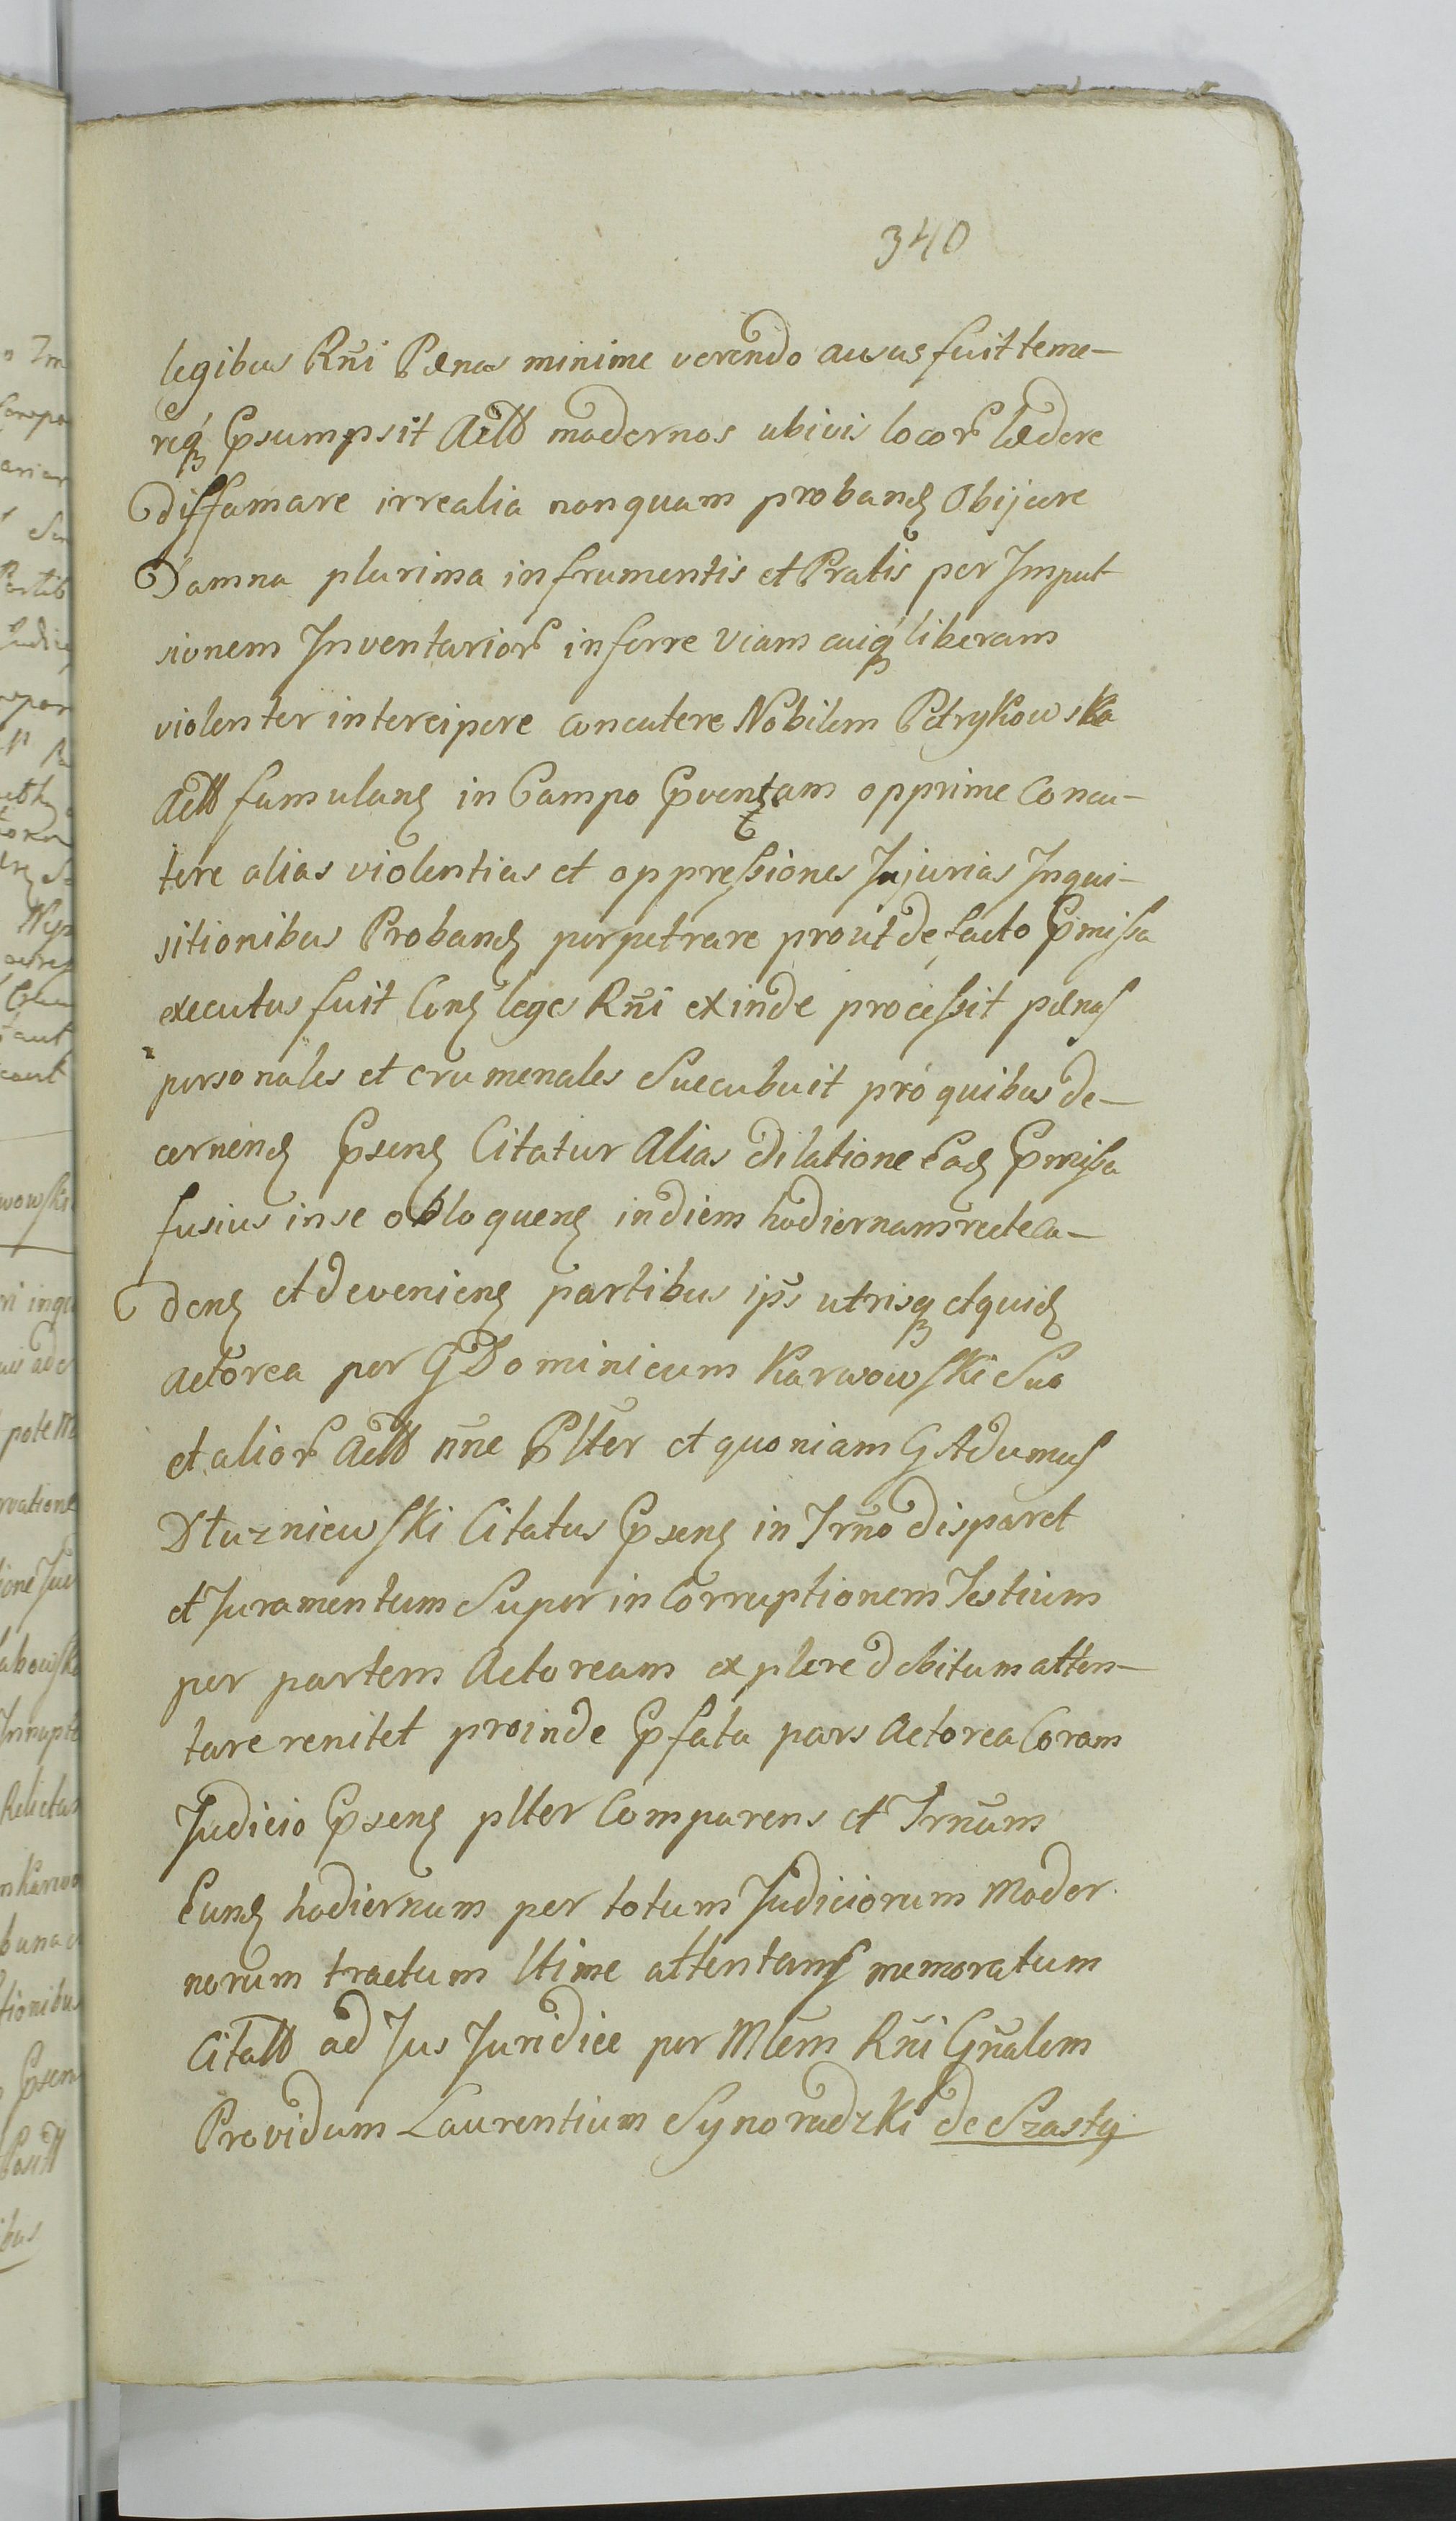 340
legibus Rñi Pænas minime verendo ausus fuit teme-
req́ꝫ Præsumpsit Actt modernos ubivis locor lædere
diffamare irrealia nonquam proband Obijcere
Damna plurima in frumentis et Pratis per Impul-
sionem Inventarior inferre Viam cuiq́ꝫ liberam
violenter intercipere concutere Nobilem Petrykowska
Actt famulan in Campo Prævenṭam opprime Concu-
tere alias violentias et oppressiones Injurias Inqui-
sitionibus Proband perpetrare prout de facto Præmissa
executus fuit Con leges Rñi exinde processit pænas
personales et crumenales Succubuit pro quibus de-
cernend Præsen Citatur Alias dilatione Ead Præmissa
fusius in se obloquen in diem hodiernam recte ca-
den et devenien partibus ip̃s utrisqꝫ et quid
actorea per G Dominicum Karwowski Suo
et alior Actt nñe Pltter et quoniam G Adamus
Dłuzniewski Citatus Præsen in Trño disparet
et Juramentum Super in Corruptionem Testium
per partem Actoream explere debitum atten-
tare renitet proinde Præfata pars Actorea Coram
Judicio Præsen pltter Comparens et Trñum
Eund hodiernum per totum Judiciorum Moder
norum tractum lttime attentans memoratum
Citatt ad Jus Juridice per Mlem Rñi Gñalem
Providum Laurentium Synoradzki de Szasty